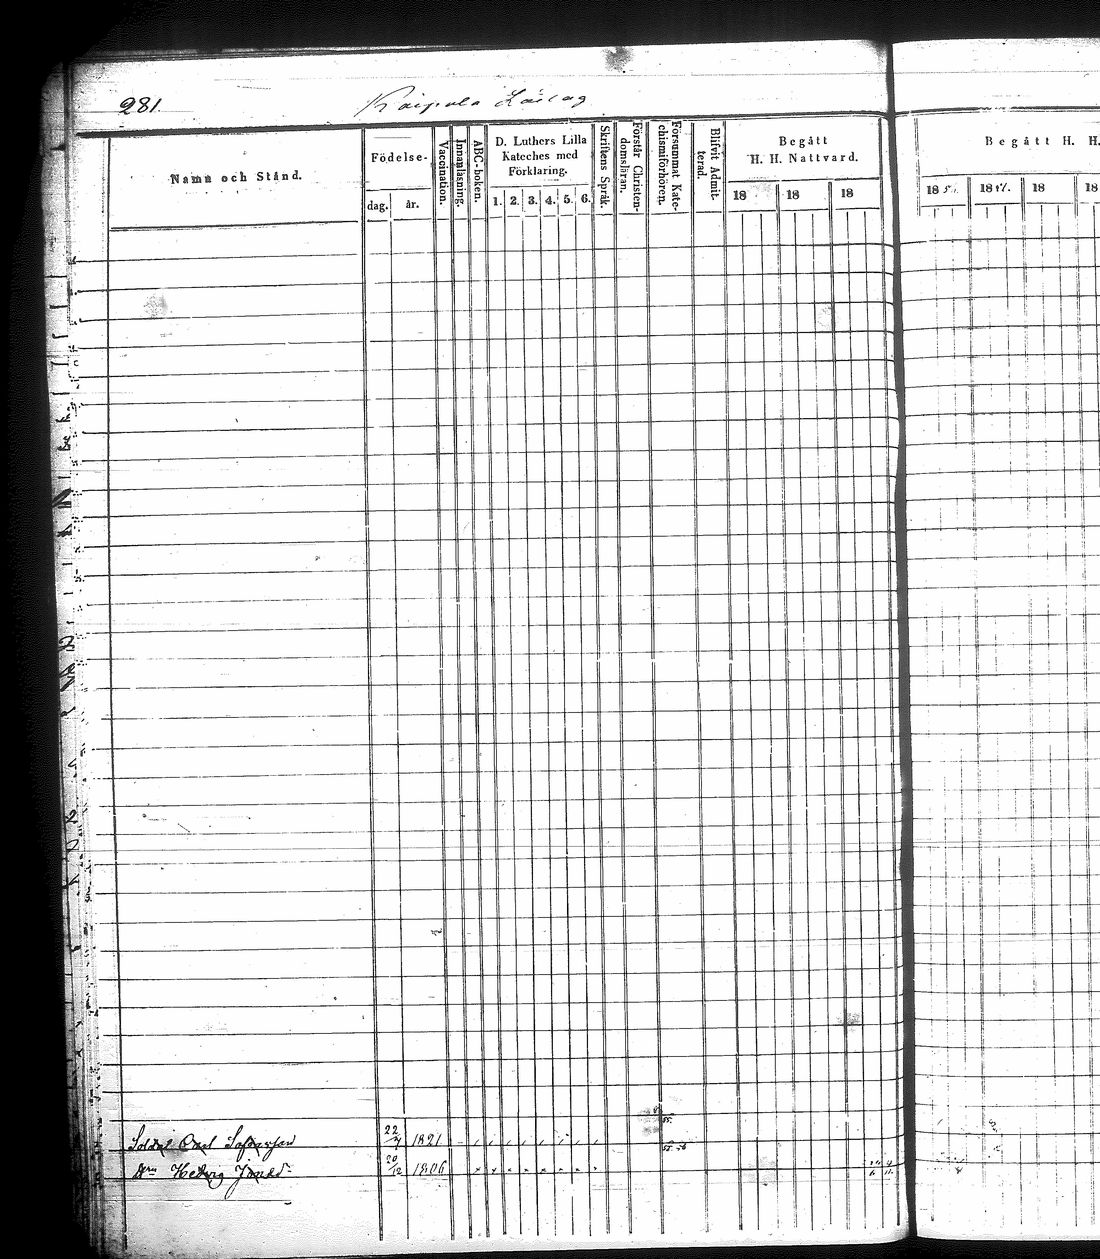 281.
Kaipola Lästag
Namn och Stånd.
Födelse-
dag. år.
Vaccination.
Innanläsning.
ABC-boken.
D. Luthers Lilla
Kateches med
Förklaring.
1. 2. 3. 4. 5. 6.
Skriftens Språk.
Förstår Christen-
domsläran.
Försummat Kate-
chismiförhören.
Blifvit Admit-
terad.
Begått
H. H. Nattvard.
18 18 18
Begått H. H.
18 18 18 18
Soldat Carl 22/7 1821
Hedvig 20/12 1806